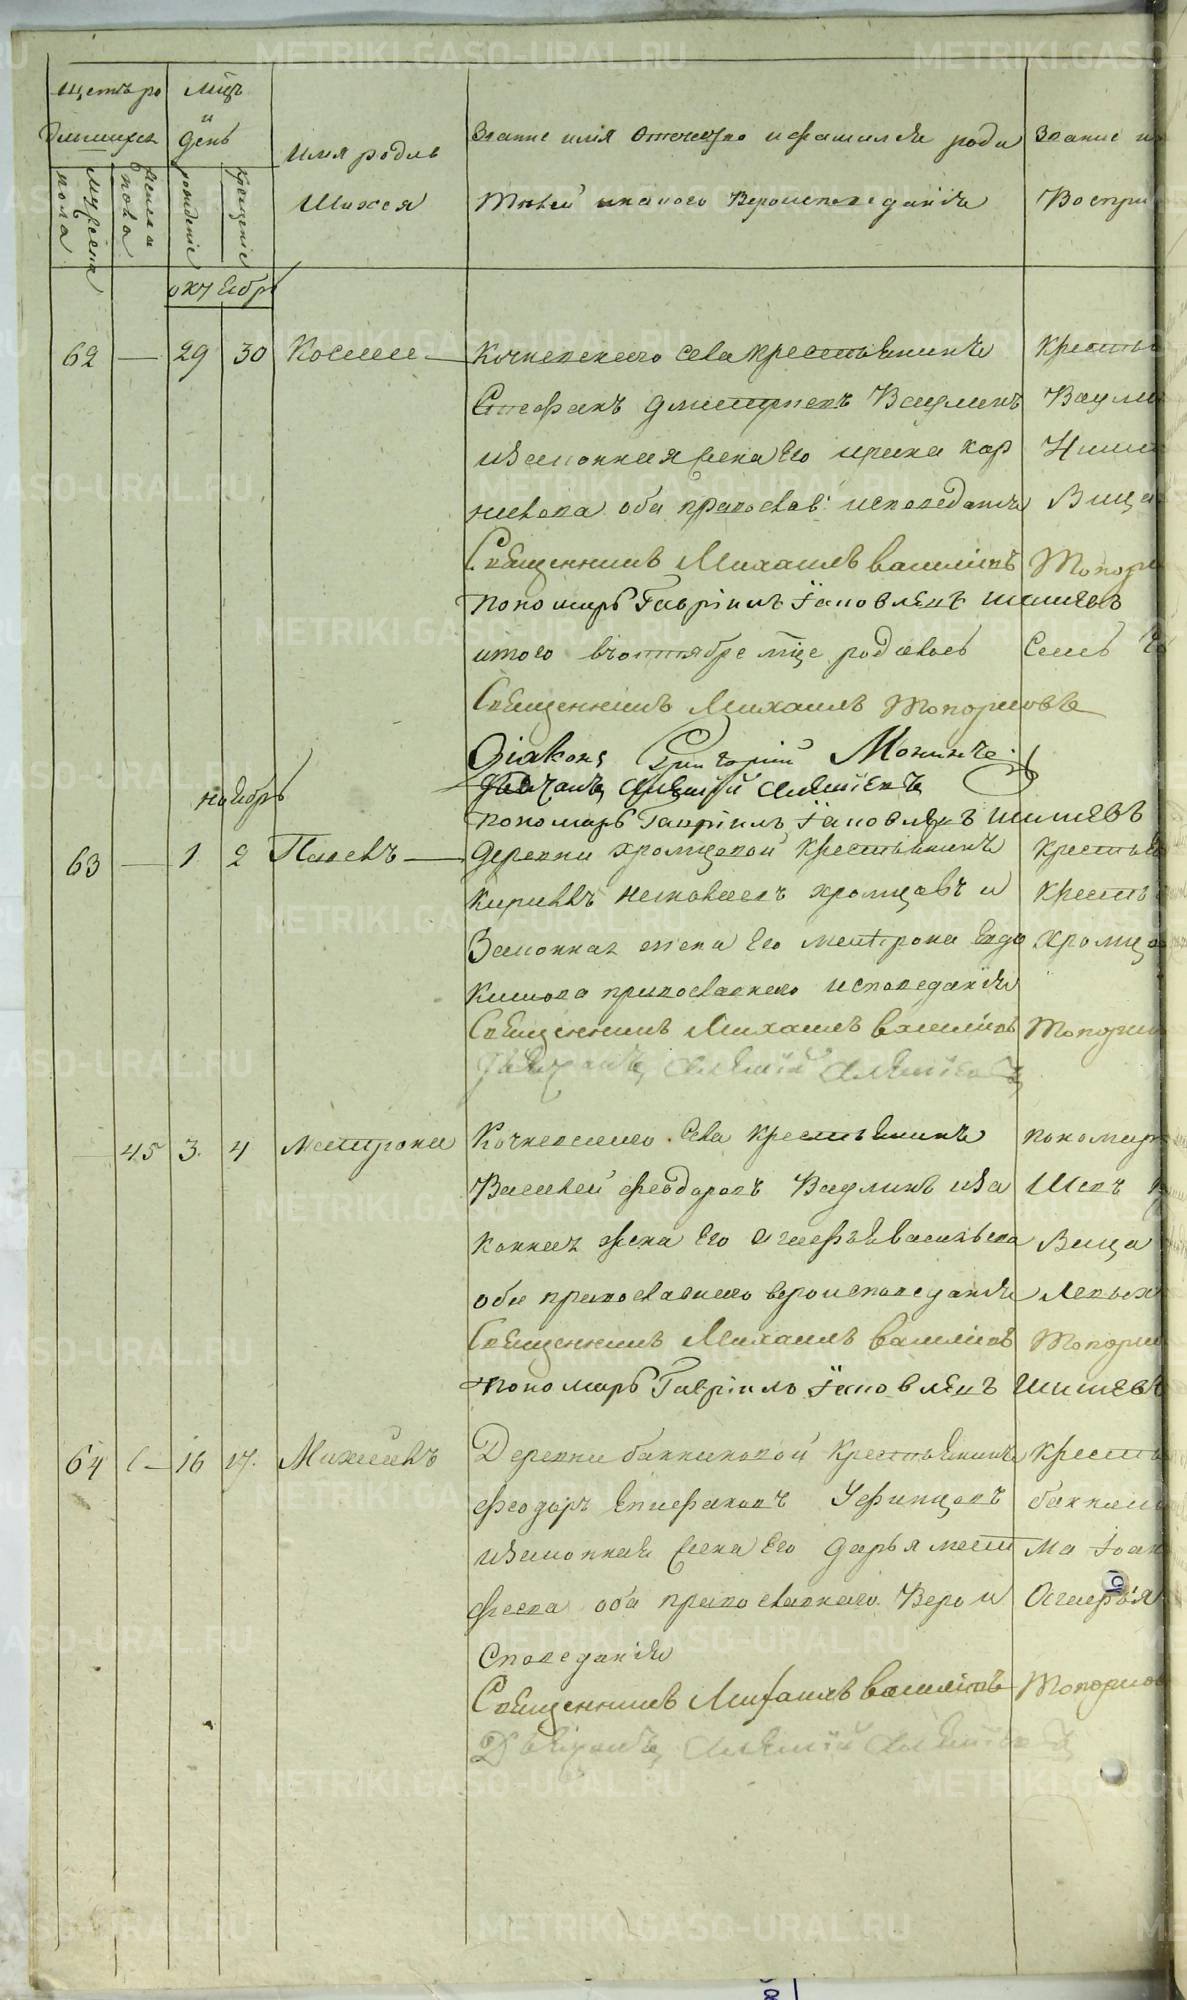 Щетъ ро
дившихся
Мцъ
и
день
Мужеска
пола
женска
пола
рожденіе
крещеніе
Имя родив
шихся
Звание имя отечество и фамилія роди
телей и какого вероисповеданія
Звание и
Воспри
октябрь
62 — 29 30 Косма — Кочневского села крестьянинъ
Стефанъ Дмитриевъ Ваулинъ
и законная жена его ирина кар
неева оба православ: исповеданія
Священникъ Михаилъ Василіевъ Топорк
пономарь Гавріилъ Іаковлевъ Шишевъ
итого в октябре мце родилось Семь
Священникъ Михаилъ Топорковъ
Діаконъ Григорій Мокинъ
Дьячокъ Алексій Алексіевъ
пономарь Гавріилъ Іаковлевъ Шишевъ
Кресть
Ваули
Вица
ноябрь
63 — 1 2 Павелъ — Деревни Хромцовой крестьянинъ
Кирилъ Хромцовъ и
Законная жена его Матрона Евдо
кимова православнаго исповеданія
Священникъ Михаилъ Василіевъ Топорк
Дьячокъ Алексій Алексіевъ
Кресть
Крестъ
Хромцо
45 3 4 Матрона Кочневского села крестьянинъ
Василей Феодоровъ Ваулинъ и за
конная жена его Агафья Васильева
оба православнаго вероисповеданія
Священникъ Михаилъ Василіевъ Топорк
пономарь Гавріилъ Іаковлевъ Шишевъ
пономар
Вица
64 — 16 17. Михаилъ Деревни Бакниковой крестьянинъ
Феодоръ Епифановъ Уфинцовъ
и законная жена его Дарья мат
феева оба православнаго Веро и
споведанія
Священникъ Михаилъ Василіевъ Топорков
Дьячокъ Алексій Алексіевъ
Кресть
ма Іоан
METRIKI.GASO-URAL.RU